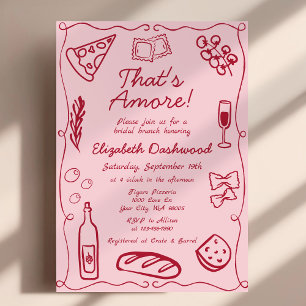 That's
Amore!
Please join us for a
bridal brunch honoring
Elizabeth Dashwood
Saturday, September 19th
at 4 o'clock in the afternoon
Figaro Pizzeria
1000 Love Ln
Your City, WA 98055
RSVP to Allison
at 123-456-7890
Registered at Crate & Barrel